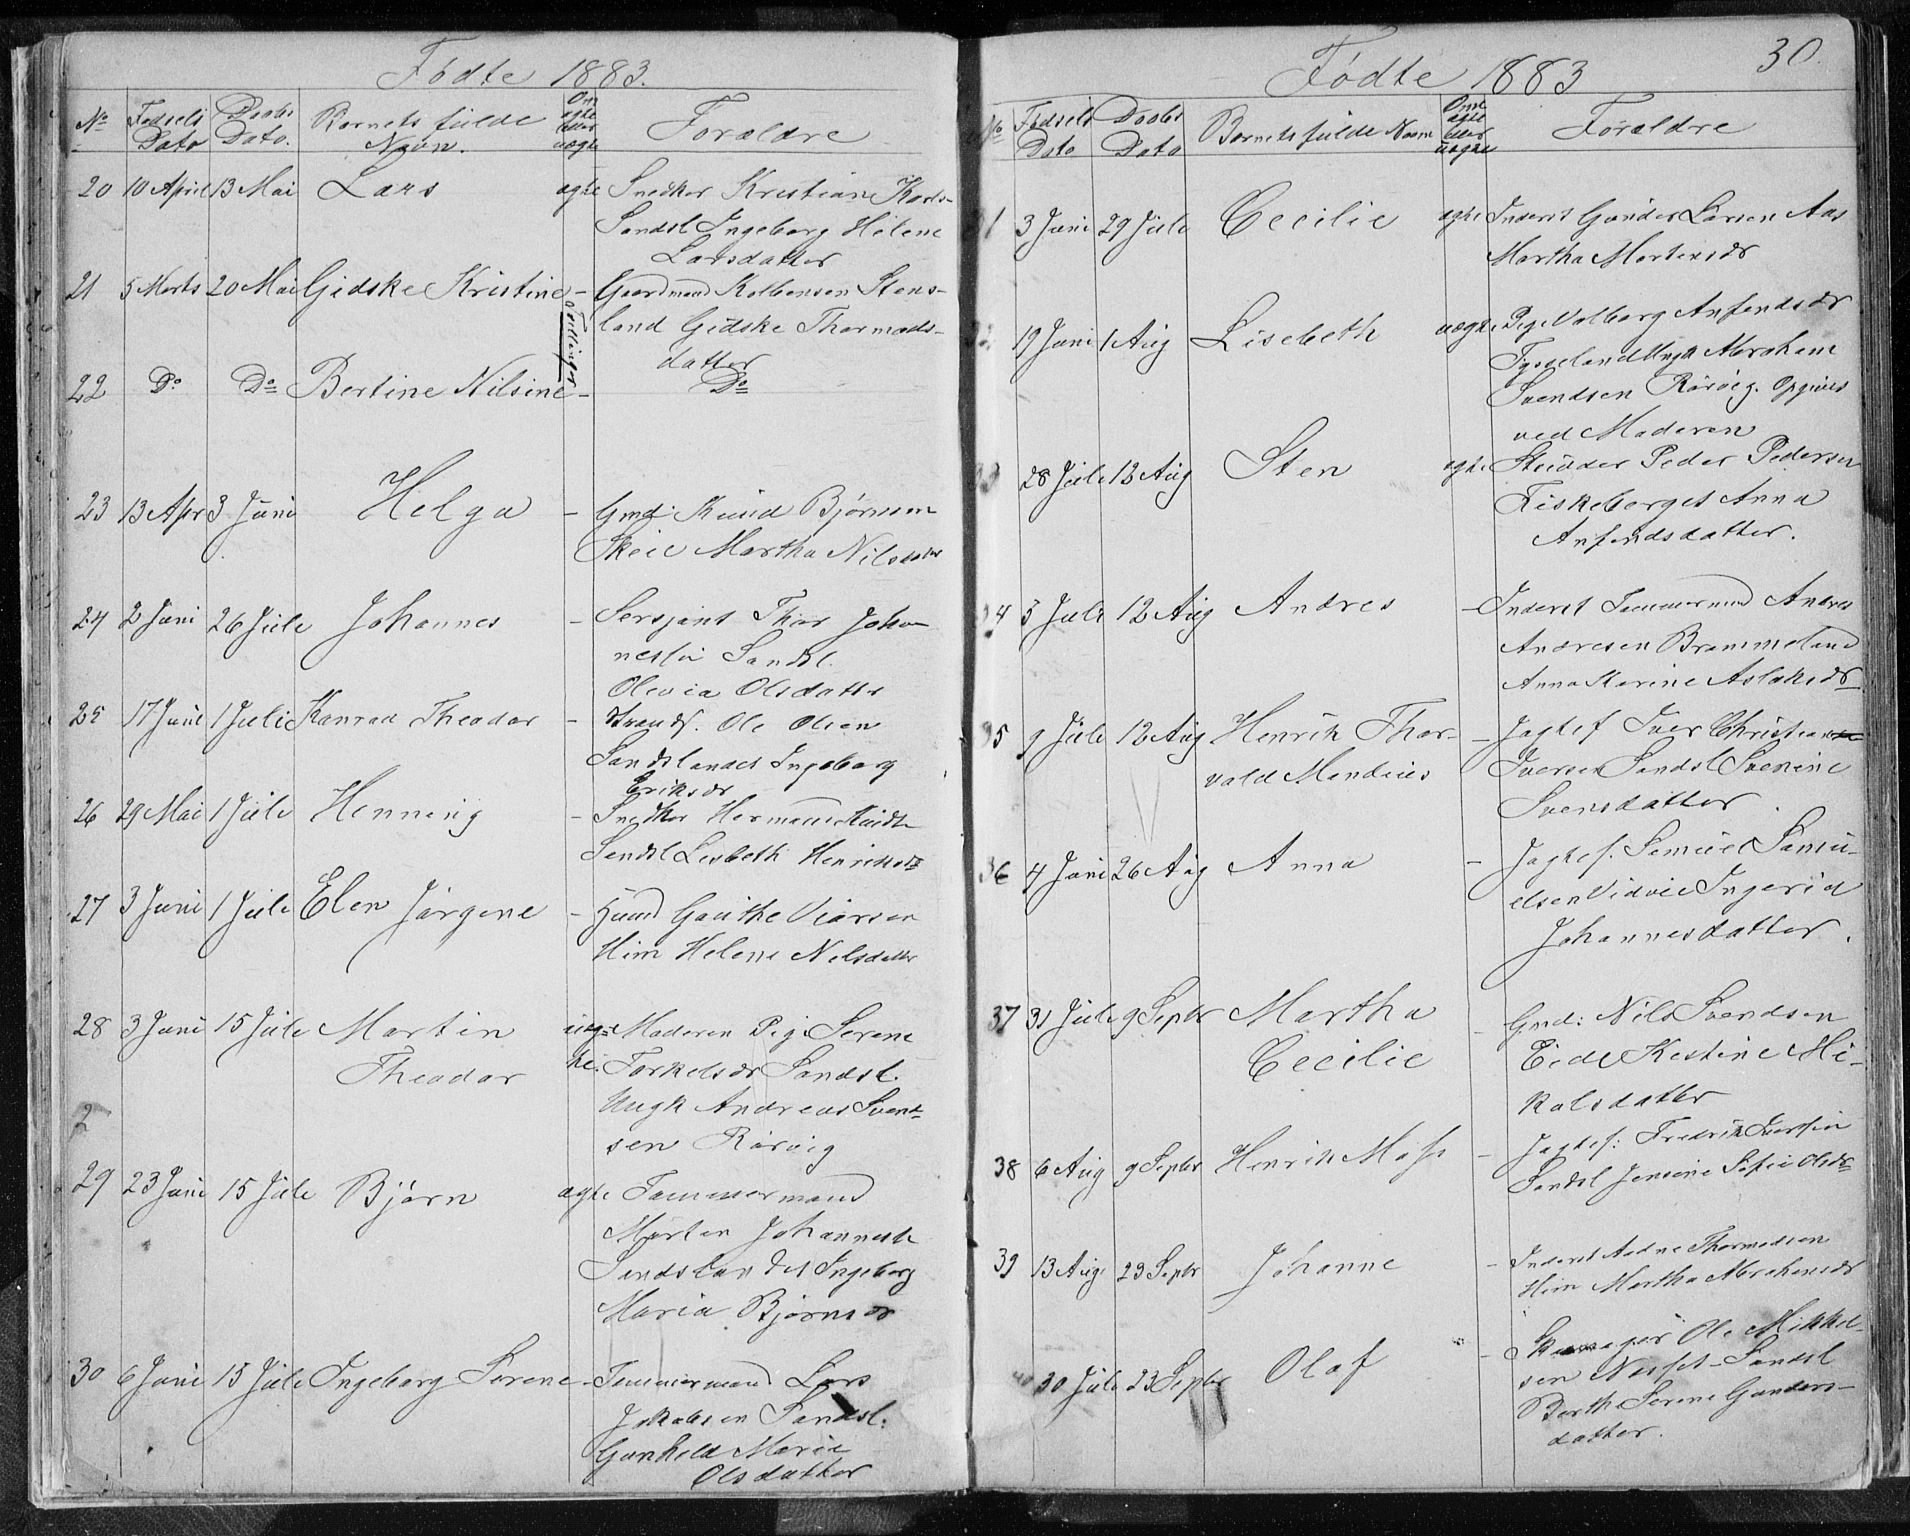 Fødte 1883.
No Fødsels Dato Daabs Dato. Barnets fulde Navn. Om ægte eller uægte Forældre
20 10 April 13 Mai Lars ægte Snedker Kristian Karls-
Sandsl Ingeborg Helene
Larsdatter
21 5 Marts 20 Mai Gidske Kristine - Gaardmand Kolbensen Stens-
land Gidske Thormods-
datter
Tvillinger
22 Do Do Bertine Nilsine - Do
23 13 Apr 3 Juni Helga - Gmd: Knud Bjørnsen
Skeie Martha Nilsdatter
24 2 Juni 26 Juli Johannes - Sersjant Thor Johan
nesen Sandsl.
Olevia Olsdatter
25 17 Juni 1 Juli Konrad Theodor - Ole Olsen
Sandslandet Ingeborg
Eriksdr
26 29 Mai 1 Juli Henning - Snedker Herman
Sandsl Lisbeth Henriksdr
27 3 Juni 1 Juli Elen Jørgene - Gauthe
Him Helene Nilsdatter
28 3 Juni 15 Juli Martin uæg-
Moderen Pige Serene
Theodor te. Torkelsdr Sandsl.
Ungk Andreas Svend-
sen Rørvig
2
29 23 Juni 15 Juli Bjørn ægte Tømmermand
Morten Johannesen
Sandslandet Ingeborg
Maria Bjørnsdr
30 6 Juni 15 Juli Ingeborg Serene - Tømmermand Lars
Jakobsen Sandsl.
Gunhild Marie
Olsdatter
30.
Fødte 1883
No Fødsels Dato Daabs Dato Barnets fulde Navn Om ægte eller uægte Forældre
31 3 Juni 29 Juli Cecilie ægte Inderst Gunder Larsen Aas
Martha Mortensdr
32 19 Juni 1 Aug Lisebeth uægte Pige Valborg Anfindsdr
Tysseland Ungk Abraham
Svendsen Rørvig. Opgives
ved Moderen
33 28 Juli 12 Aug Sten ægte Peder Pedersen
Fiskeberget Anna
Anfindsdatter.
34 5 Juli 12 Aug Andres - Inderst Tømmermand Andres
Andresen Brommeland
Anna Marine Aslaksdr
35 9 Juli 12 Aug Henrik Thor- - Jagtef Iver Christian
vald Mandius Iversen Sandsl Svenine
Svensdatter.
36 4 Juni 26 Aug Anna - Jagtef. Samuel Samu-
elsen Vidvie Ingerid
Johannesdatter.
37 31 Juli 9 Septr Martha - Gmd: Nils Svendsen
Cecilie Eide Kestine Mi-
kalsdatter
38 6 Aug 9 Septr Henrik - Jagtef: Fredrik Iversen
Sandsl Jensine Sofie Olsdr
39 13 Aug 23 Septr Johanne - Inderst Aadne Thormodsen
Him Martha Abrahamsdr
40 30 Juli 23 Septr Olaf - Ole Mikkel-
sen Sandsl
Berthe Serene Gunders-
datter.